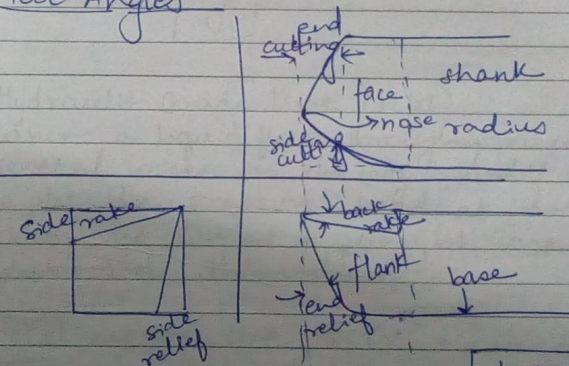 Tool Angles
end
cutting
shank
face
nose radius
side
cutting
side rake
back
rake
flank
base
end
relief
side
relief